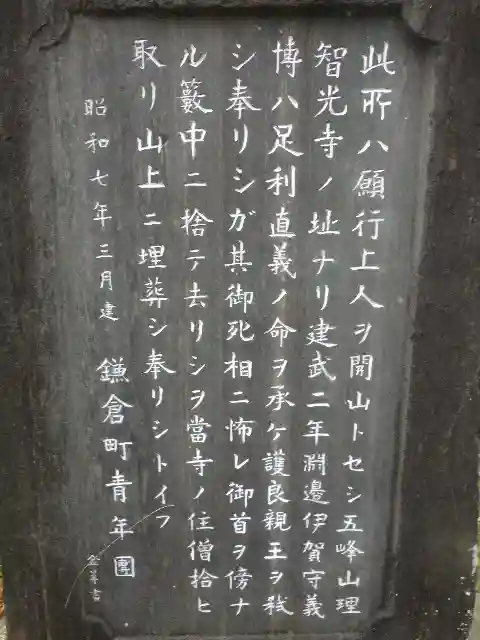 此所ハ願行上人ヲ開山トセシ五峰山理
智光寺ノ址ナリ建武二年淵邊伊賀守義
博ハ足利直義ノ命ヲ承ケ護良親王ヲ弑
シ奉リシガ其御死相ニ怖レ御首ヲ傍ナ
ル藪中ニ捨テ去リシヲ當寺ノ住僧拾ヒ
取リ山上ニ埋葬シ奉リシトイフ
昭和七年三月建 鎌倉町青年團